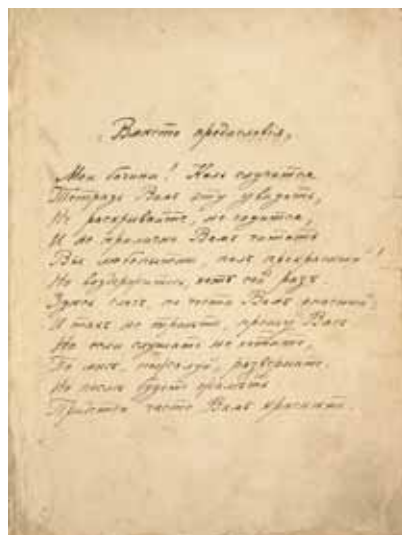 Вместо предисловія,
Мои богини! Коль случится
Тетрадь Вамъ эту увидеть,
Не раскрывайте, не годится,
И не прилично Вамъ читать
Вы любопытны, полъ прекрасный!
Но воздержитесь, хоть сей разъ
Здесь слогъ, по чести Вамъ опасный;
И такъ не троньте, прошу Васъ
Но если слушать не хотите,
Бо мнѣ, пожалуй, разверните.
Но после будете
Придется часто Вамъ краснеть.